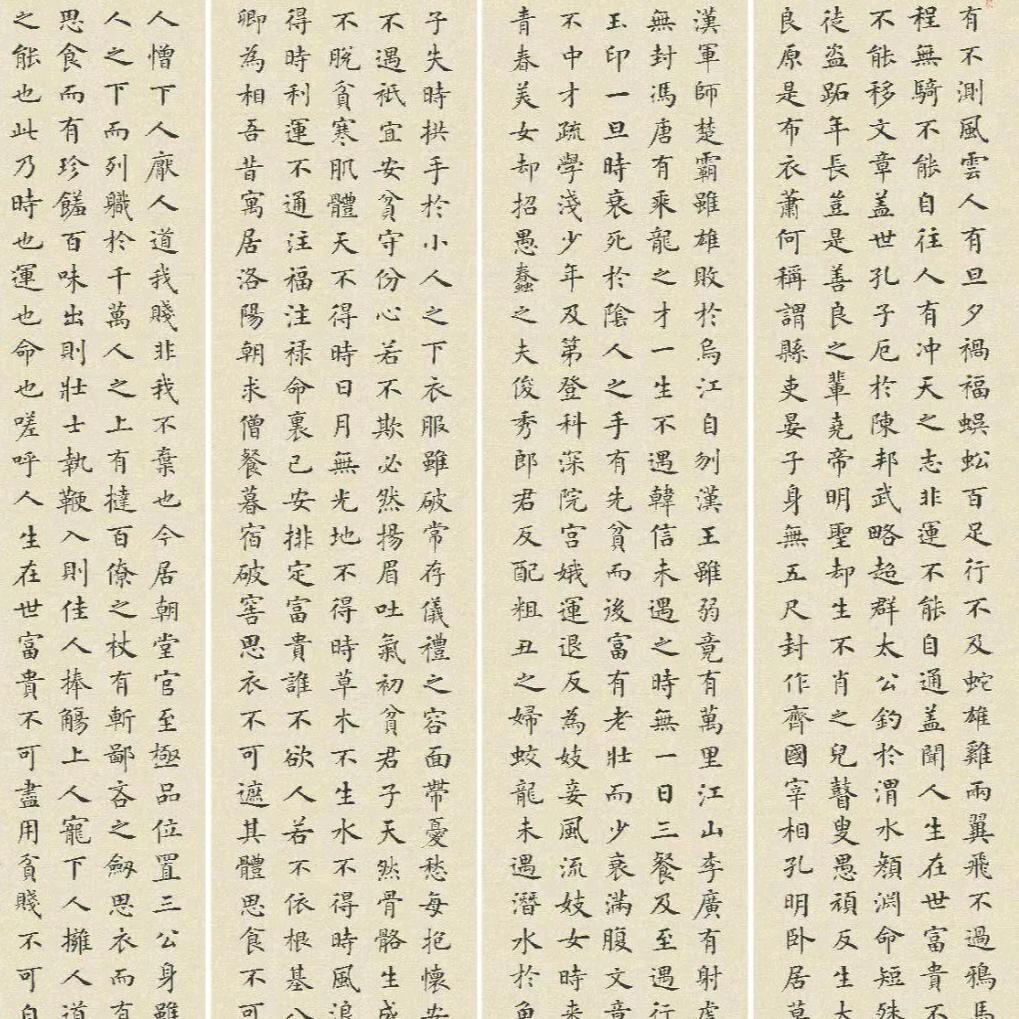 有不測風雲人有旦夕禍福蜈蚣百足行不及蛇雄雞兩翼飛不過鴉馬
程無騎不能自往人有冲天之志非運不能自通盖聞人生在世富貴不
不能移文章盖世孔子厄於陳邦武略超群太公釣於渭水顏淵命短殊
徒盜跖年長豈是善良之輩堯帝明聖却生不肖之兒瞽叟愚頑反生大
良原是布衣蕭何稱謂縣吏晏子身無五尺封作齊國宰相孔明卧居草
漢軍師楚霸雖雄敗於烏江自刎漢王雖弱竟有萬里江山李廣有射虎
無封馮唐有乘龍之才一生不遇韓信未遇之時無一日三餐及至遇行
玉印一旦時衰死於陰人之手有先貧而後富有老壯而少衰滿腹文章
不中才疏學淺少年及第登科深院宮娥運退反為妓妾風流妓女時來
青春美女却招愚蠢之夫俊秀郎君反配粗丑之婦蛟龍未遇潛水於魚
子失時拱手於小人之下衣服雖破常存儀禮之容面帶憂愁每抱懷安
不遇祇宜安貧守份心若不欺必然揚眉吐氣初貧君子天然骨骼生成
不脫貧寒肌體天不得時日月無光地不得時草木不生水不得時風浪
得時利運不通注福注祿命裏已安排定富貴誰不欲人若不依根基八
卿為相吾昔寓居洛陽朝求僧餐暮宿破窖思衣不可遮其體思食不可
人憎下人厭人道我賤非我不棄也今居朝堂官至極品位置三公身雖
人之下而列職於千萬人之上有撻百僚之杖有斬鄙吝之劍思衣而有
思食而有珍饈百味出則壯士執鞭入則佳人捧觴上人寵下人擁人道
之能也此乃時也運也命也嗟呼人生在世富貴不可盡用貧賤不可自